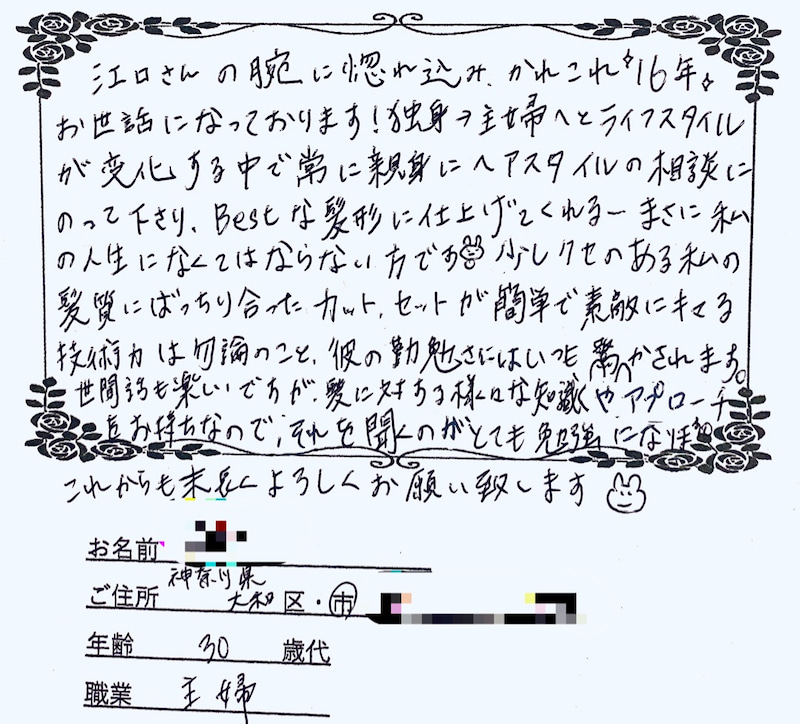 江口さんの腕に惚れ込み、かれこれ16年
お世話になっております!独身→主婦へとライフスタイル
が変化する中で常に親身にヘアスタイルの相談に
のって下さり、Bestな髪形に仕上げてくれるーまさに私
の人生になくてはならない方です 少しクセのある私の
髪質にばっちり合ったカット、セットが簡単で素敵にキマる
技術力は勿論のこと、彼の勤勉さにはいつも驚かされます。
世間話も楽しいですが、髪に対する様々な知識やアプローチ
をお持ちなので、それを聞くのがとても勉強になります
これからも末長くよろしくお願い致します
お名前
神奈川県
ご住所 大和 区・市
年齢 30 歳代
職業 主婦